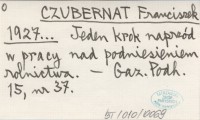 0 CZUBERNAT Franciszek
1927... Jeden krok naprzód
w pracy nad podniesieniem
rolnictwa. - Gaz. Podh.
15, nr 37.
BT/010/0069